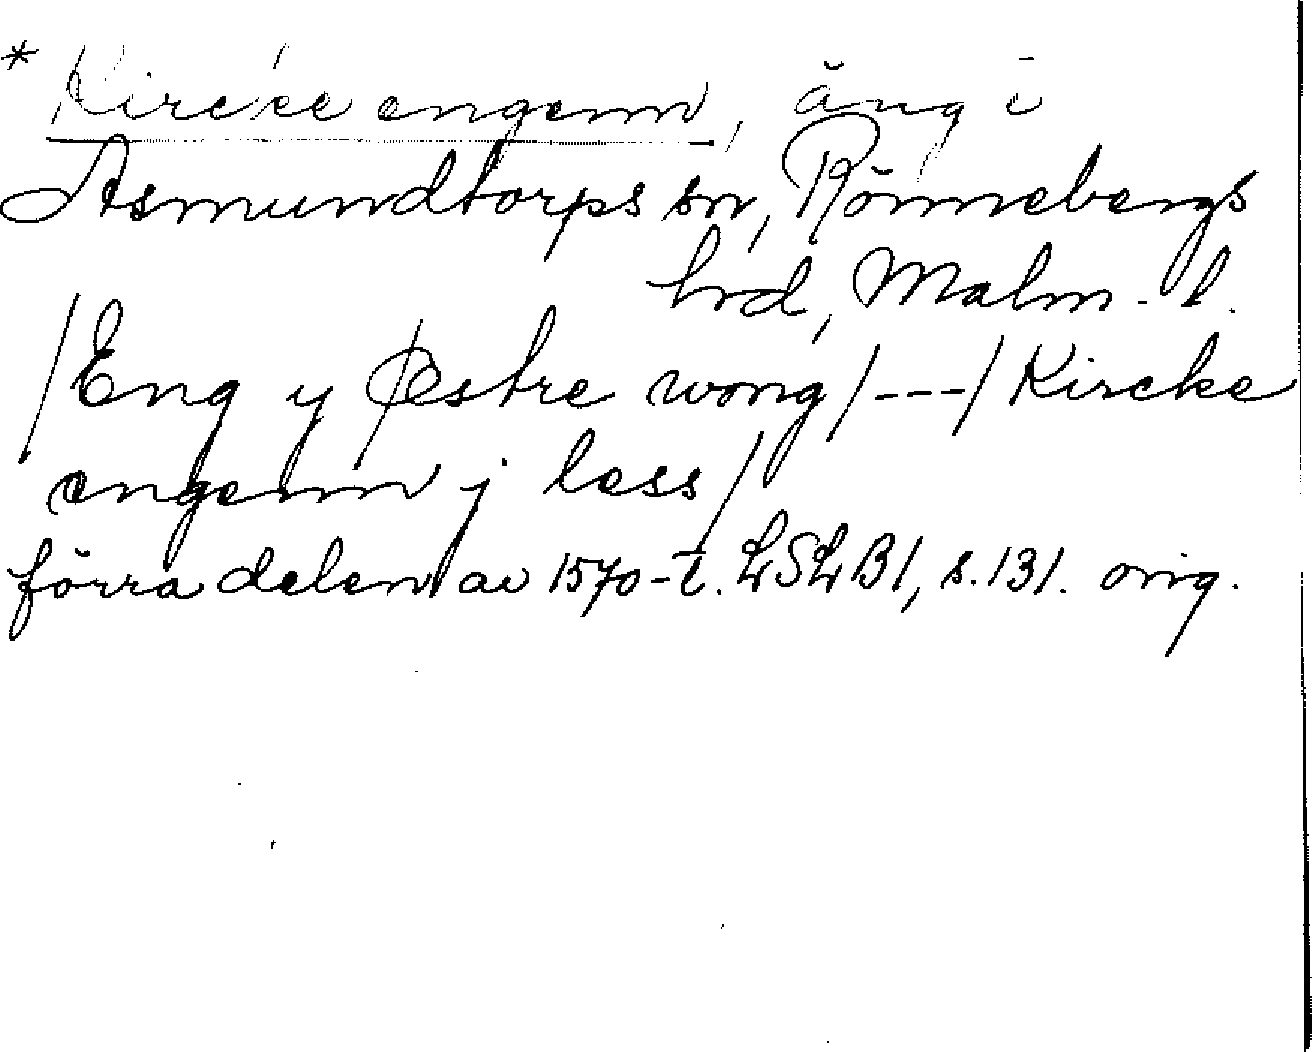 * Kircke engenn, äng i
Asmundtorps sn, Rönnebergs
hrd, Malm. l.
/Eng y Østre wong/---/Kircke
engenn j less/
förra delen av 1570-t. LSLB1, s.131. orig.